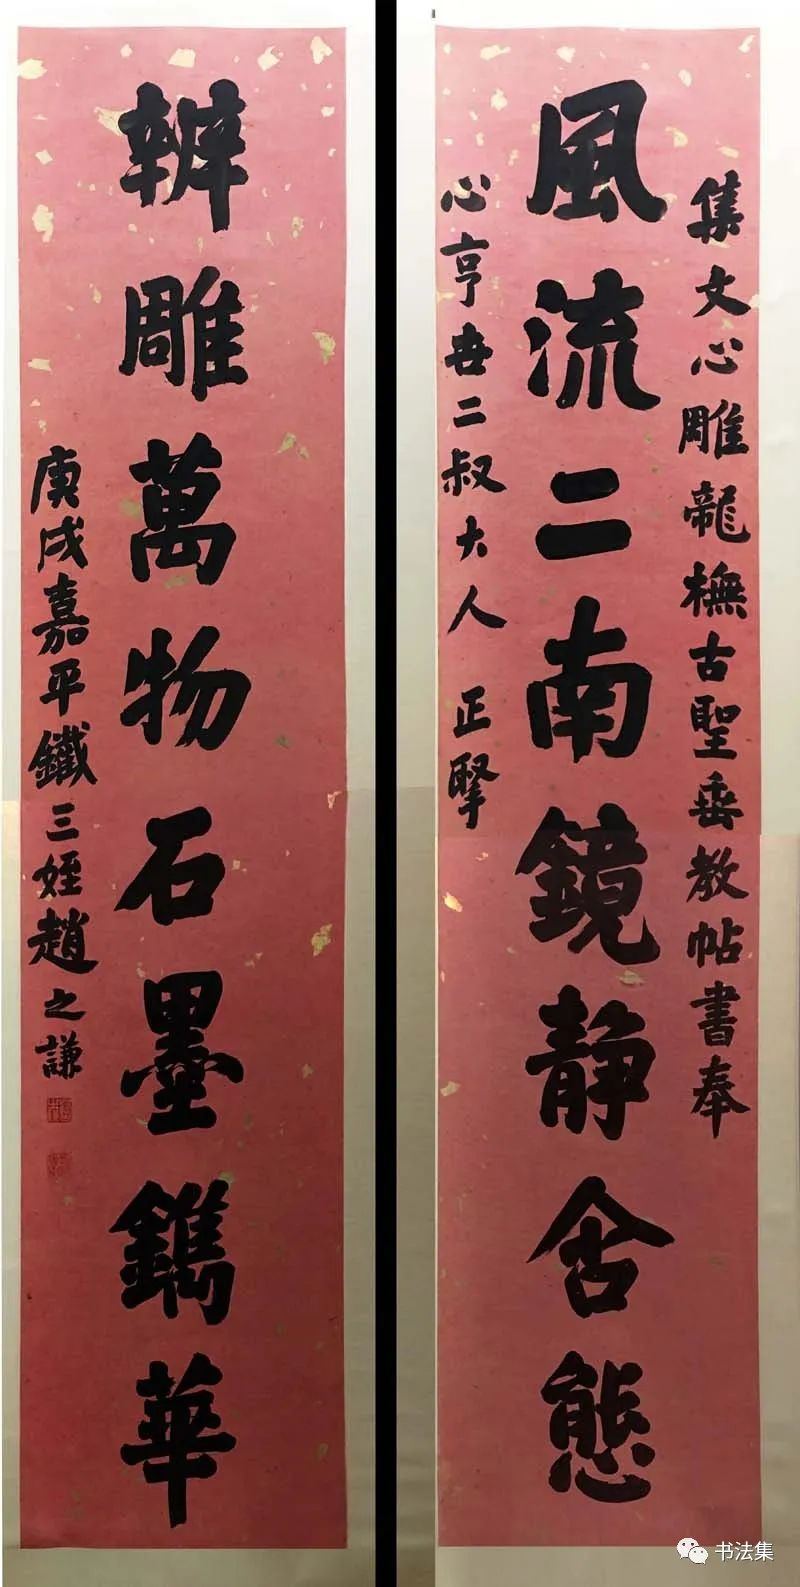 集文心雕龍橅古聖垂教帖書奉
風流二南鏡静含態
心亨世二叔大人 正掔
辨雕萬物石墨鐫華
庚戌嘉平鐵三姪趙之謙
书法集